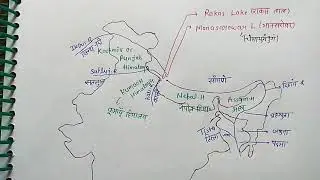 Rakas Lake (राक्षस ताल)
Manasarowar L. (मानसरोवर)
Indus R
सिन्धु नदी
Kashmir or
Punjab
Himalaya
Satluj R
सतलुज
Kumaon
Himalaya
कुमायूँ हिमालय
काली
सांगपो
Nepal H
नेपाल हिमालय
Assam H
असम
Tista
तिस्ता
दिहांग
ब्रह्मपुत्र
जमुना
पद्मा